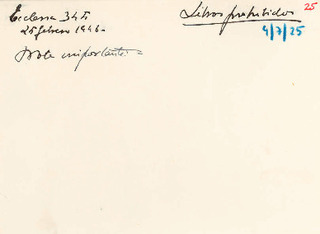 Ecclesia 345
25 febrero 1946-
Nota importante =
Libros prohibidos
25
4/7/25